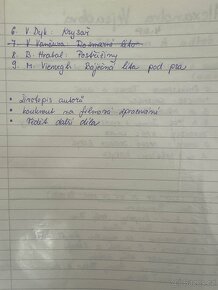 6. V Dyk: Krysař
7. V Vančura Rozmarné léto
8. B. Hrabal: Postřižiny
9. M. Viewegh: Báječná léta pod psa
• životopis autorů
• kouknout na filmová zpracování
• vědět další díla